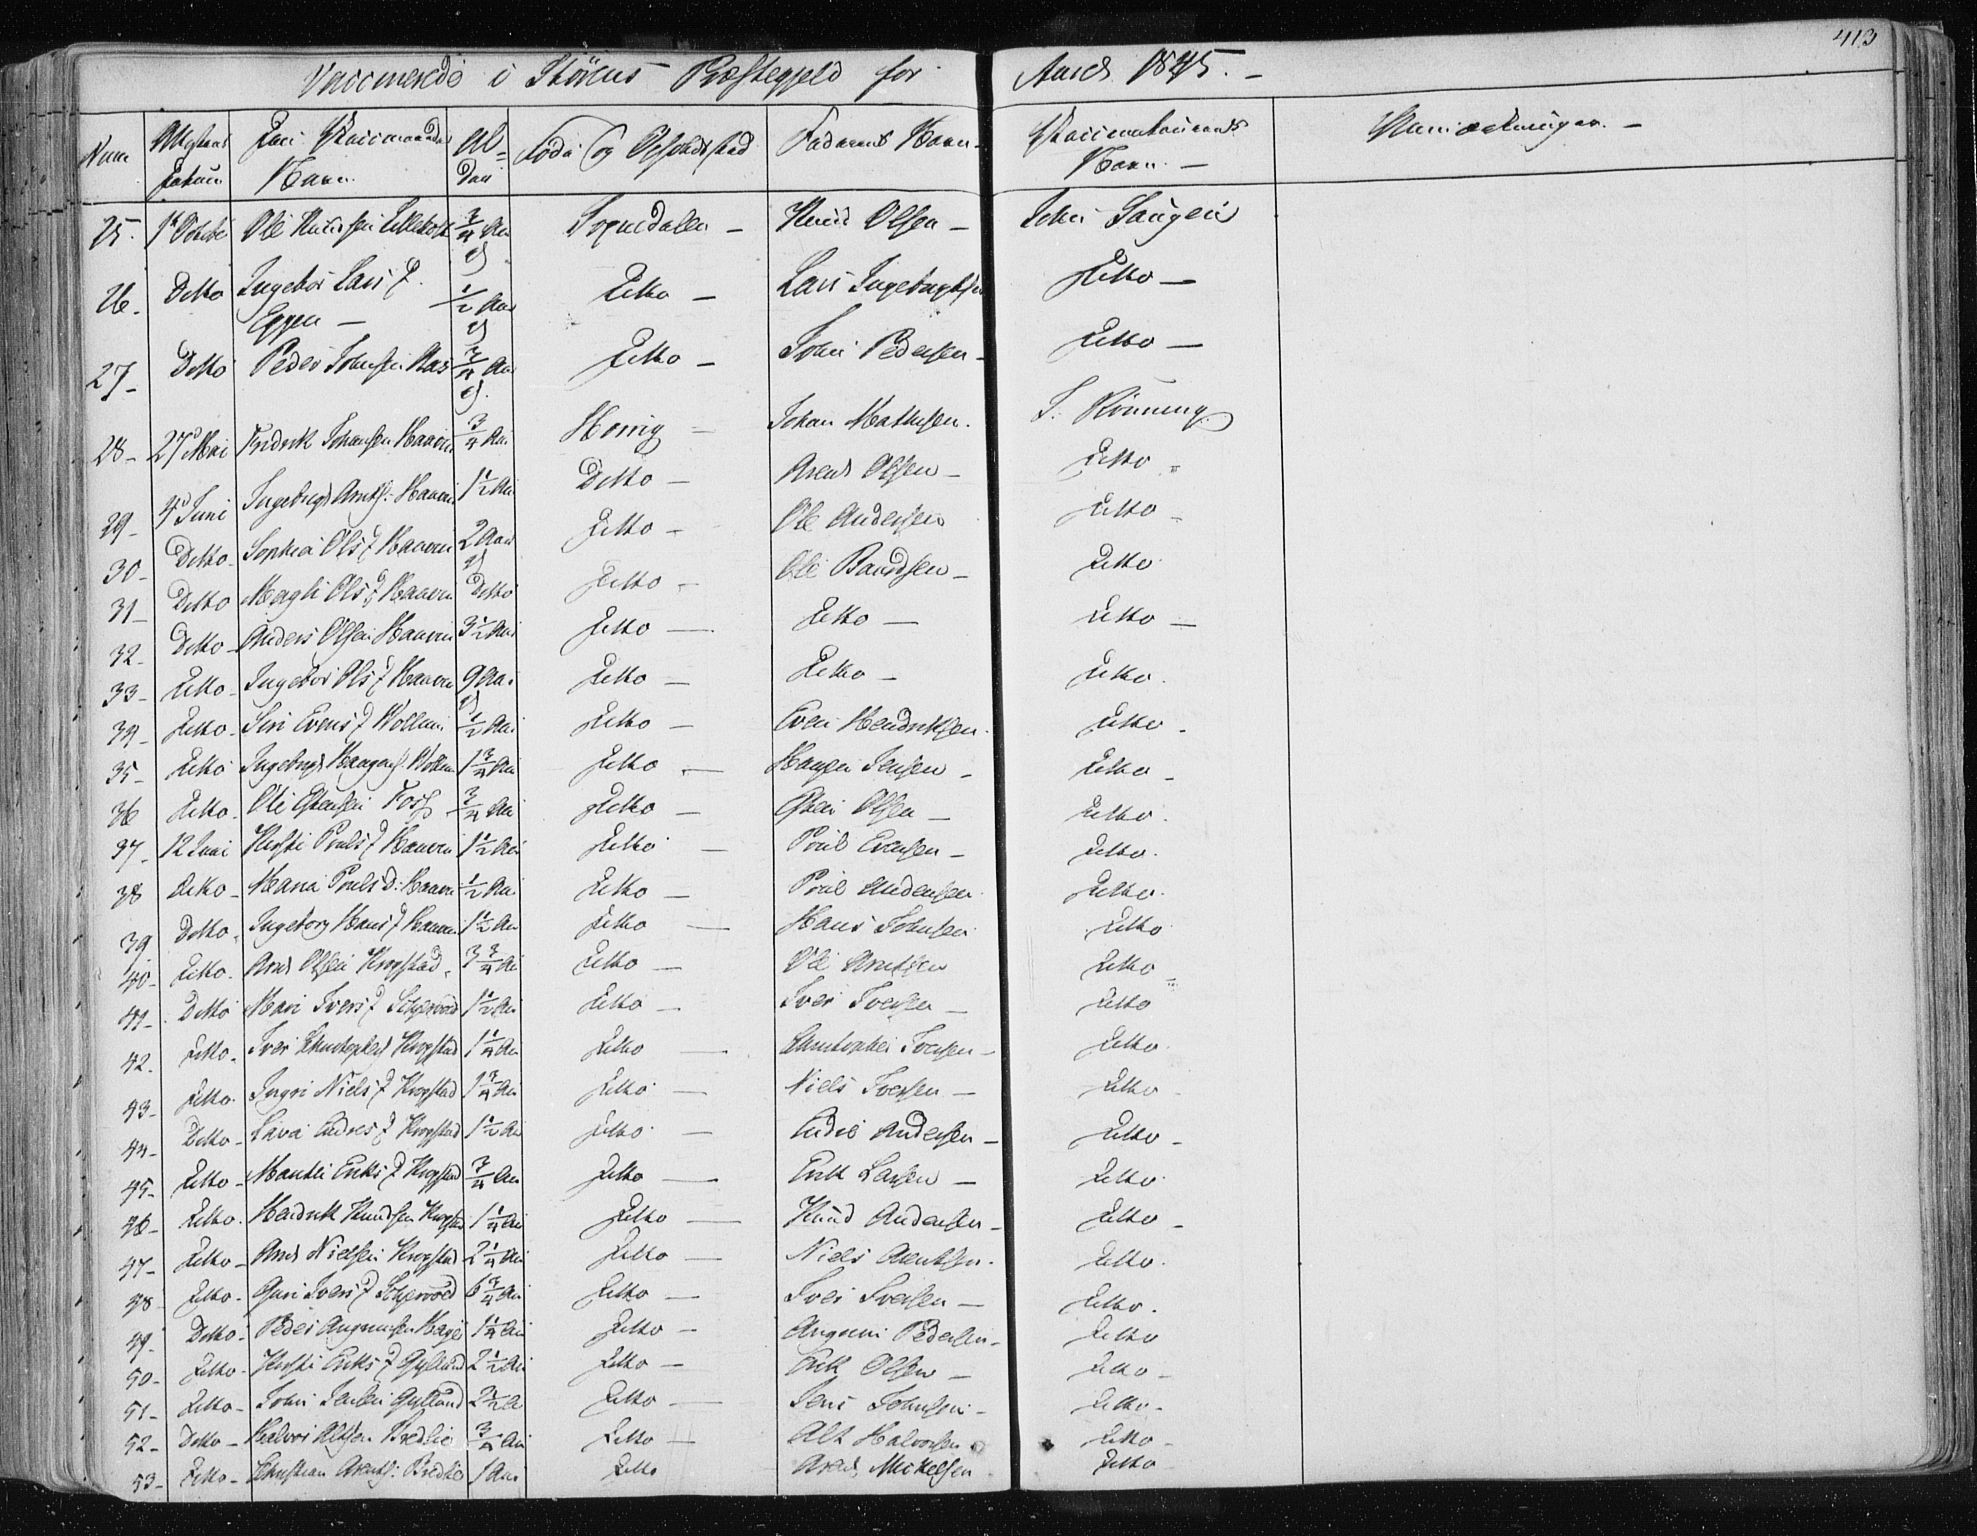 413
Vaccinerede i Størens Præstegjeld for Aaret 1845. -
Num Attestens Datum Den Vaccineredes Navn Alder Føde og Opholdssted Faderens Navn Vaccinateurens Navn - Anmærkninger. -
25. 1st Octobr Ole Knudsen 3/4 Aar Soknedalen - Knud Olsen - John Haugen
26. Ditto Ingebor Lars D. Eggen - 1/2 Aar Ditto - Lars Ingebrigtsen Ditto -
27 - Ditto Peder Johnsen Aas 3/4 Aar Ditto - John Pedersen - Ditto -
28 - 27 Mai Fredrik Johansen Haaven 3/4 Aar Horrig - Johan Mathisen. Rønning
29 - 4 Juni Ingebrigt Arntsen Haaven 1 1/2 Aar Ditto - Arent Olsen - Ditto -
30 - Ditto - Sophia Ols D Haaven 2 Aar Ditto - Ole Andersen Ditto -
31 - Ditto Ols D Haaven Ditto Ditto - Ole Ditto
32 - Ditto - Anders Olsen Haaven 3 1/2 Aar Ditto - Ditto - Ditto -
33 - Ditto - Ingebor Ols D Haaven 9 Aar Ditto - Ditto - Ditto.
34 - Ditto - Siri Evens D Wollum 1/2 Aar Ditto - Even Hendriksen. Ditto -
35 - Ditto Ingebrigt Haagens. 1 3/4 Aar Ditto - Haagen Jensen - Ditto -
36 Ditto - Ole Estensen Foss 3/4 Aar Ditto - Esten Olsen - Ditto.
37 - 12 Juni Kirsti Pouls D Haaven 1 1/2 Aar Ditto - Poul Evensen - Ditto.
38 Ditto - Maria Pouls D. Haaven 1/2 Aar Ditto - Poul Andersen Ditto.
39 Ditto - Ingeborg Hans D Haaven 1 1/2 Aar Ditto - Hans Johnsen Ditto
40 - Ditto - Arnt Olsen Krogstad 3 3/4 Aar Ditto - Ole Arntsen Ditto
41 - Ditto Mari Ivers D 1 1/2 Aar Ditto - Iver Iversen - Ditto
42. Ditto - Iver Christophers Krogstad 1 1/4 Aar Ditto - Christopher Iversen - Ditto.
43 - Ditto. Ingri Niels D Krogstad 1 3/4 Aar Ditto - Niels Iversen - Ditto -
44 - Ditto - Endres D Krogstad 1 1/2 Aar Ditto - Endre Andersen - Ditto -
45 - Ditto - Eriks D Krogstad 3/4 Aar Ditto - Erik Larsen - Ditto.
46 - Ditto. Hendrik Knudsen Krogstad 1 1/4 Aar Ditto - Knud Andersen - Ditto -
47 - Ditto - Arnt Nielsen Krogstad 2 1/4 Aar Ditto - Niels Arentsen. Ditto.
48 - Ditto - Guri Ivers D 6 3/4 Aar Ditto - Iver Iversen - Ditto.
49. Ditto - Peder 1 1/4 Aar Ditto - Pedersen - Ditto
50 - Ditto - Kirsti Eriks D Gylland 2 1/2 Aar Ditto - Erik Olsen - Ditto -
51 - Ditto - John Jensen Gylland 2 1/2 A Ditto - Jens Johnsen - Ditto -
52 - Ditto - Halvor Altsen Bredlie 3/4 Aar Ditto - Alt Halvorsen Ditto -
53 - Ditto - Christian Arents. Bredlie 1 Aar Ditto Arent Mikelsen Ditto